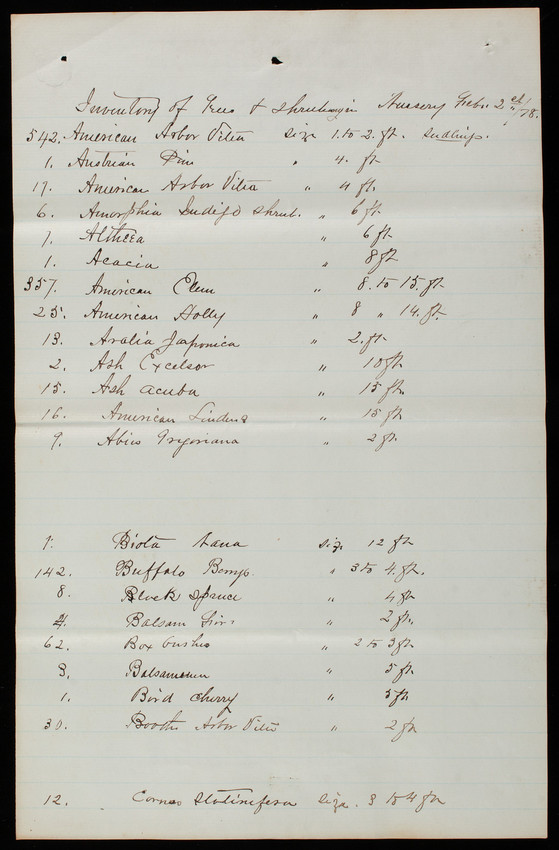 Inventory of Trees & shrubs in Nursery Feb. 2ed/78.
542. American Arbor Vitea size 1. to 2. ft. Seedlings.
1. Austrian Pine " 4. ft
17. American Arbor Vitea " 4 ft.
6. Amorphia Indigo shrub. " 6 ft
7. Althea " 6 ft
1. Acacia " 8 ft
357. American Elm " 8. to 15. ft.
25. American Holly " 8 " 14. ft.
13. Aralia Japonica " 2. ft
2. Ash Excelsor " 10 ft
15. Ash acuba " 15 ft.
16. American Lindens " 15 ft
9. Abies " 2 ft
1. Biota nana size 12 ft
142. Buffalo Berry. " 3 to 4 ft.
8. Black Spruce " 4 ft
4. Balsam Firs " 2 ft.
62. Box bushes " 2 to 3 ft.
3. " 5 ft
1. Bird cherry " 5 ft.
30. Booths Arbor Vitea " 2 ft
12. Cornus Stolinifera size. 3 to 4 ft